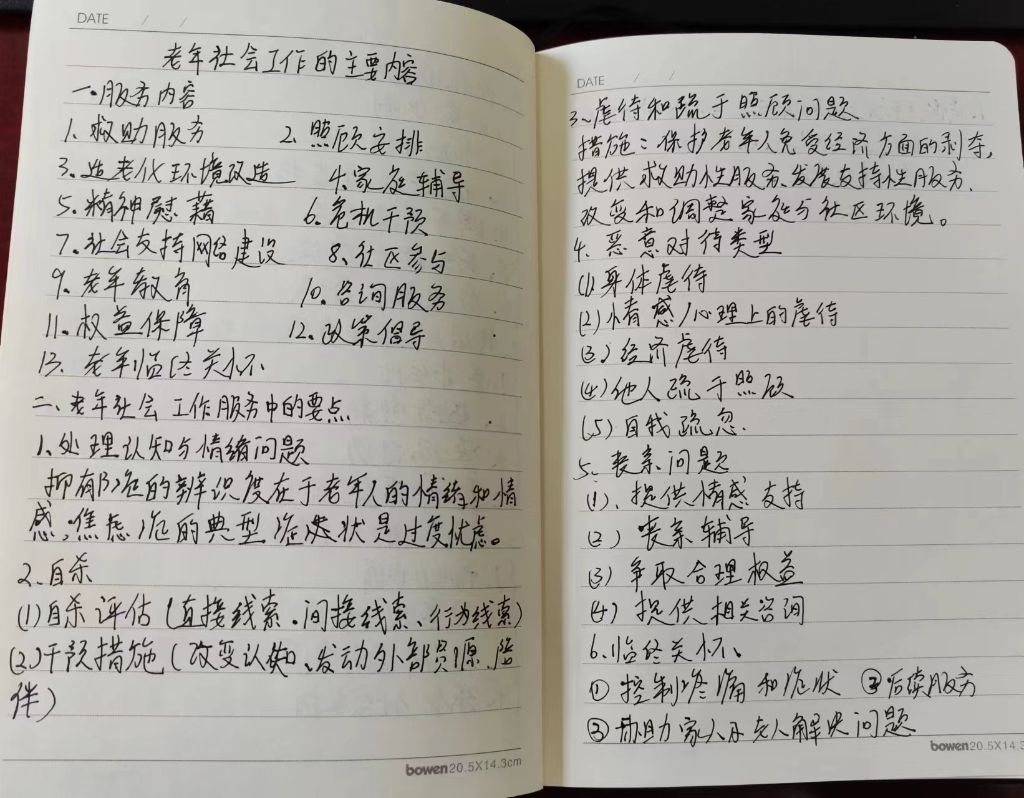 DATE / /
老年社会工作的主要内容
一.服务内容
1.救助服务 2.照顾安排
3.适老化环境改造 4.家庭辅导
5.精神慰藉 6.危机干预
7.社会支持网络建设 8、社区参与
9.老年教育 10.咨询服务
11.权益保障 12.政策倡导
13.老年临终关怀
二、老年社会工作服务中的要点
1、处理认知与情绪问题
抑郁症的辨识度在于老年人的情绪和情
感,焦虑症的典型症状是过度忧虑。
2.自杀
(1)自杀评估(直接线索、间接线索、行为线索)
(2)干预措施(改变认知、发动外部资源、陪
伴)
bowen 20.5X14.3cm
DATE / /
3、虐待和疏于照顾问题
措施:保护老年人免受经济方面的剥夺,
提供救助性服务、发展支持性服务、
改变和调整家庭与社区环境。
4.恶意对待类型
(1)身体虐待
(2)情感/心理上的虐待
(3)经济虐待
(4)他人疏于照顾
(5)自我疏忽.
5、丧亲问题
(1).提供情感支持
(2)丧亲辅导
(3)争取合理权益
(4)提供相关咨询
6.临终关怀、
①控制疼痛和症状 ②后续服务
③帮助家人及老人解决问题
bowen 20.5X14.3